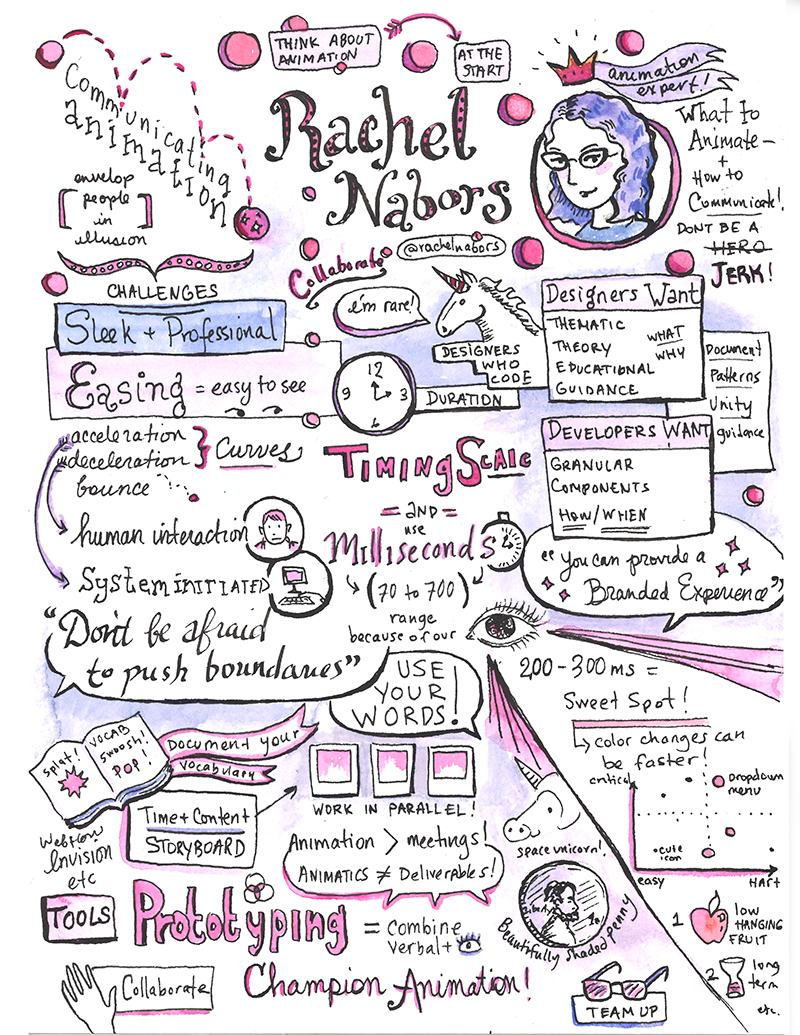 THINK ABOUT
ANIMATION
AT THE
START
Communicating
animation
envelop
people
in
illusion
Rachel
Nabors
@rachelnabors
animation
expert!
What to
Animate –
+
How to
Communicate!
DONT BE A
HERO
JERK!
CHALLENGES
Sleek + Professional
Easing = easy to see
acceleration
deceleration
bounce
Curves
human interaction
System INITIATED
"Don't be afraid
to push boundaries"
Collaborate
I'm rare!
DESIGNERS
WHO
CODE
12
3
6
9
DURATION
TIMING SCALE
= AND =
use
Milliseconds
(70 to 700)
range
because of our
Designers Want
THEMATIC
THEORY
EDUCATIONAL
GUIDANCE
WHAT
WHY
Document
Patterns
Unity
guidance
DEVELOPERS WANT
GRANULAR
COMPONENTS
HOW/WHEN
"you can provide a
Branded Experience"
USE
YOUR
WORDS!
200-300 ms =
Sweet Spot!
color changes can
be faster!
critical
dropdown
menu
cute
icon
easy
HArt
Splat!
VOCAB
swoosh!
POP!
DOCUMENT your
vocabulary
Time + Content
STORYBOARD
WORK IN PARALLEL!
Animation > meetings!
ANIMATICS ≠ Deliverables!
space unicorn!
Liberty
Beautifully shaded penny
Webflow
Invision
etc
TOOLS
Prototyping
= combine
verbal +
Collaborate
Champion Animation!
TEAM UP
1
low
HANGING
FRUIT
2
long
term
etc.